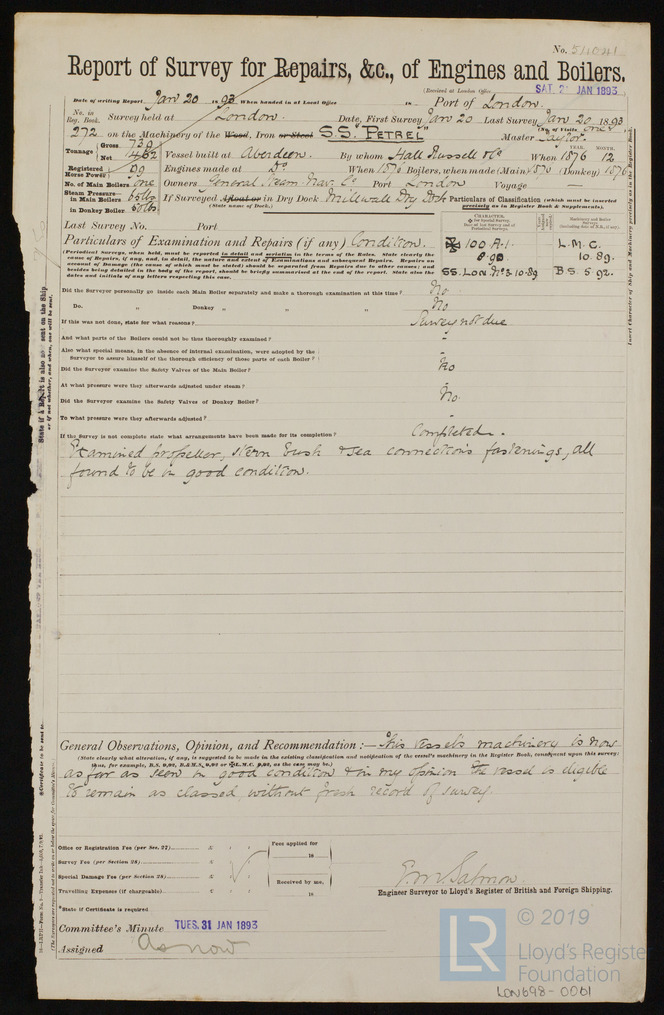 No. 51041
Report of Survey for Repairs, &c., of Engines and Boilers.
(Received at London Office SAT. 21 JAN 1893
Date of writing Report Jan 20 1893 When handed in at Local Office 18 Port of London.
No. in Reg. Book. Survey held at London. Date, First Survey Jan 20 Last Survey Jan 20 1893
(No. of Visits one)
272 on the Machinery of the Wood, Iron or Steel S.S. "Petrel" Master Taylor.
Tonnage Gross 739 Net 462 Vessel built at Aberdeen. By whom Hall Russell & Co When 1876 YEAR. MONTH. 12
Registered Horse Power 99 Engines made at Do When 1876 Boilers, when made (Main) 1876 (Donkey) 1876
No. of Main Boilers one Owners General Steam Nav. Co. Port London Voyage —
Steam Pressure— in Main Boilers 65 lbs in Donkey Boiler 60 lbs If Surveyed Afloat or in Dry Dock Millwall Dry Dock
(State name of Dock.)
Particulars of Classification (which must be inserted precisely as in Register Book & Supplements).
Last Survey No. Port
Particulars of Examination and Repairs (if any) Condition.
Periodical Surveys, when held, must be reported in detail and seriatim in the terms of the Rules. State clearly the
cause of Repairs, if any, and, in detail, the nature and extent of Examinations and subsequent Repairs. Repairs on
account of Damage (the cause of which must be stated) should be separated from Repairs due to other causes; and
besides being detailed in the body of the report, should be briefly summarised at the end of the report. State also the
dates and initials of any letters respecting this case.
CHARACTER.
Machinery and Boiler Surveys
100 A.1. L.M.C.
8.90 10.89.
SS. Lon. No 3. 10.89 B S. 5 92.
Did the Surveyor personally go inside each Main Boiler separately and make a thorough examination at this time? No
Do. " Donkey " " " No
If this was not done, state for what reasons? Survey not due
And what parts of the Boilers could not be thus thoroughly examined? -
Also what special means, in the absence of internal examination, were adopted by the
Surveyor to assure himself of the thorough efficiency of those parts of each Boiler? -
Did the Surveyor examine the Safety Valves of the Main Boiler? No
At what pressure were they afterwards adjusted under steam? -
Did the Surveyor examine the Safety Valves of Donkey Boiler? No
To what pressure were they afterwards adjusted? -
If the Survey is not complete state what arrangements have been made for its completion? Completed.
Examined propeller, stern bush & sea connections fastenings, all
found to be in good condition.
General Observations, Opinion, and Recommendation :— This vessel's machinery is now
(State clearly what alteration, if any, is suggested to be made in the existing classification and notification of the vessel's machinery in the Register Book, consequent upon this survey:
as far as seen in good condition & in my opinion the vessel is eligible
to remain as classed, without fresh record of survey.
Office or Registration Fee (per Sec. 27) £ : : Fees applied for
Survey Fee (per Section 28) £ : : 18
Special Damage Fee (per Section 28) £ : : Received by me,
Travelling Expenses (if chargeable) £ : : 18
E. W. Salmon
Engineer Surveyor to Lloyd's Register of British and Foreign Shipping.
*State if Certificate is required
Committee's Minute TUES. 31 JAN 1893
Assigned As now
LR © 2019
Lloyd's Register
Foundation
LON698-0001
State if a Report is also sent on the Ship
or if not, whether, and when, one will be sent.
Insert Character of Ship and Machinery precisely as in the Register Book.